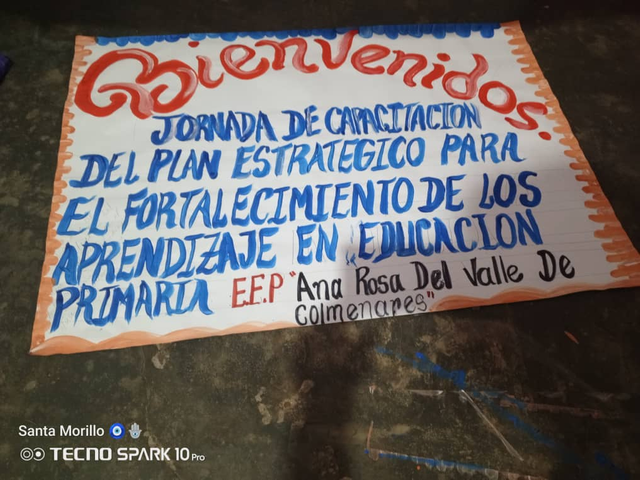 Bienvenidos.
JORNADA DE CAPACITACION
DEL PLAN ESTRATEGICO PARA
EL FORTALECIMIENTO DE LOS
APRENDIZAJE EN EDUCACION
PRIMARIA E.E.P "Ana Rosa Del Valle De
Colmenares"
Santa Morillo 🧿🪬
TECNO SPARK 10 Pro